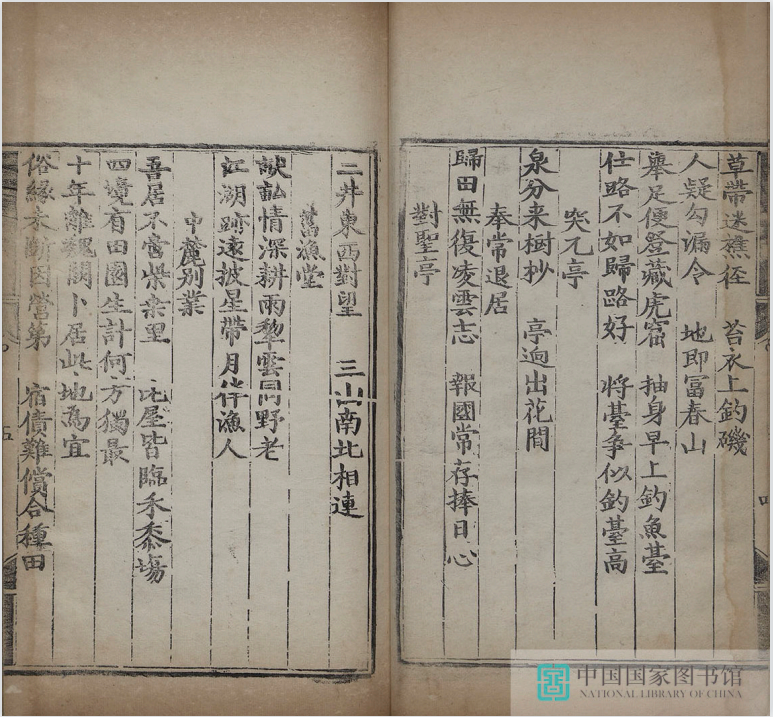 草帶迷樵徑　苔衣上釣磯
人疑勾漏令　地即冨春山
舉足便登藏虎窟　抽身早上釣魚臺
仕路不如歸路好　將臺爭似釣臺高
突兀亭
泉分来樹抄　亭逈出花間
奉常退居
歸田無復凌雲志　報國常存捧日心
對聖亭
二井東西對望　三山南北相連
舊漁堂
畎畝情深耕雨犂雲同野老
江湖跡遠披星帶月伴漁人
中麓別業
吾居不啻柴桑里　比屋皆臨禾黍塲
四境有田園生計何方獨最
十年離魏闕卜居此地為宜
俗緣未斷因營第　宿債難償合種田
五
中国国家图书馆
NATIONAL LIBRARY OF CHINA